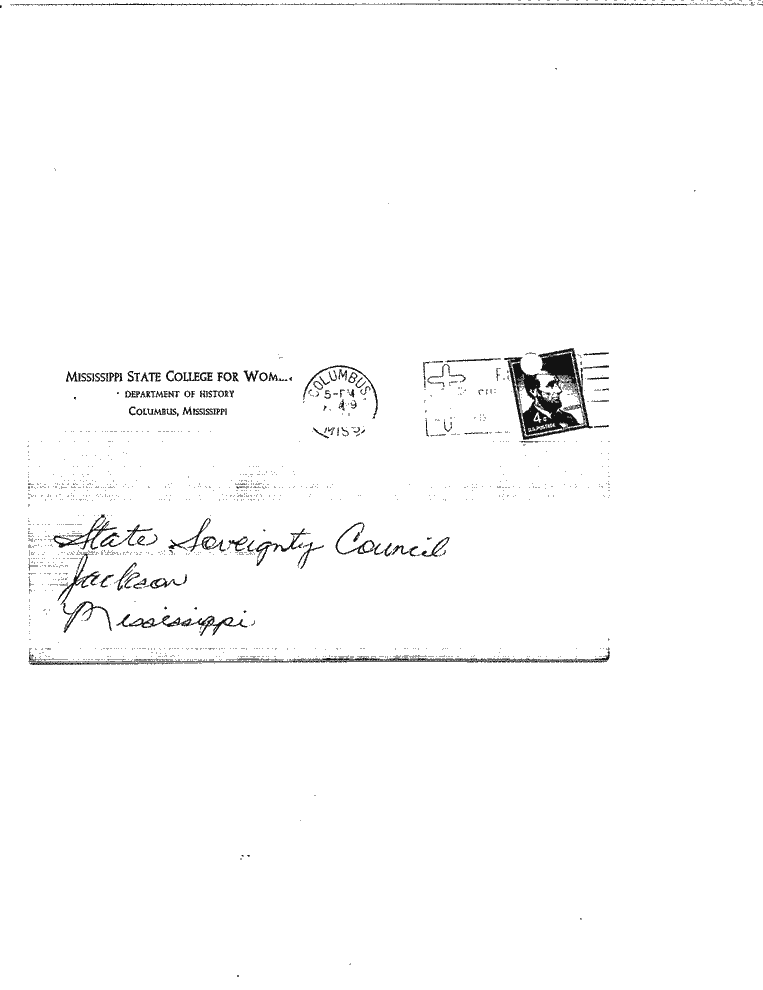 MISSISSIPPI STATE COLLEGE FOR
DEPARTMENT OF HISTORY
COLUMBUS, MISSISSIPPI
COLUMBUS
MISS
4¢
U.S. POSTAGE
State Soveignty Council
Jackson
Mississippi